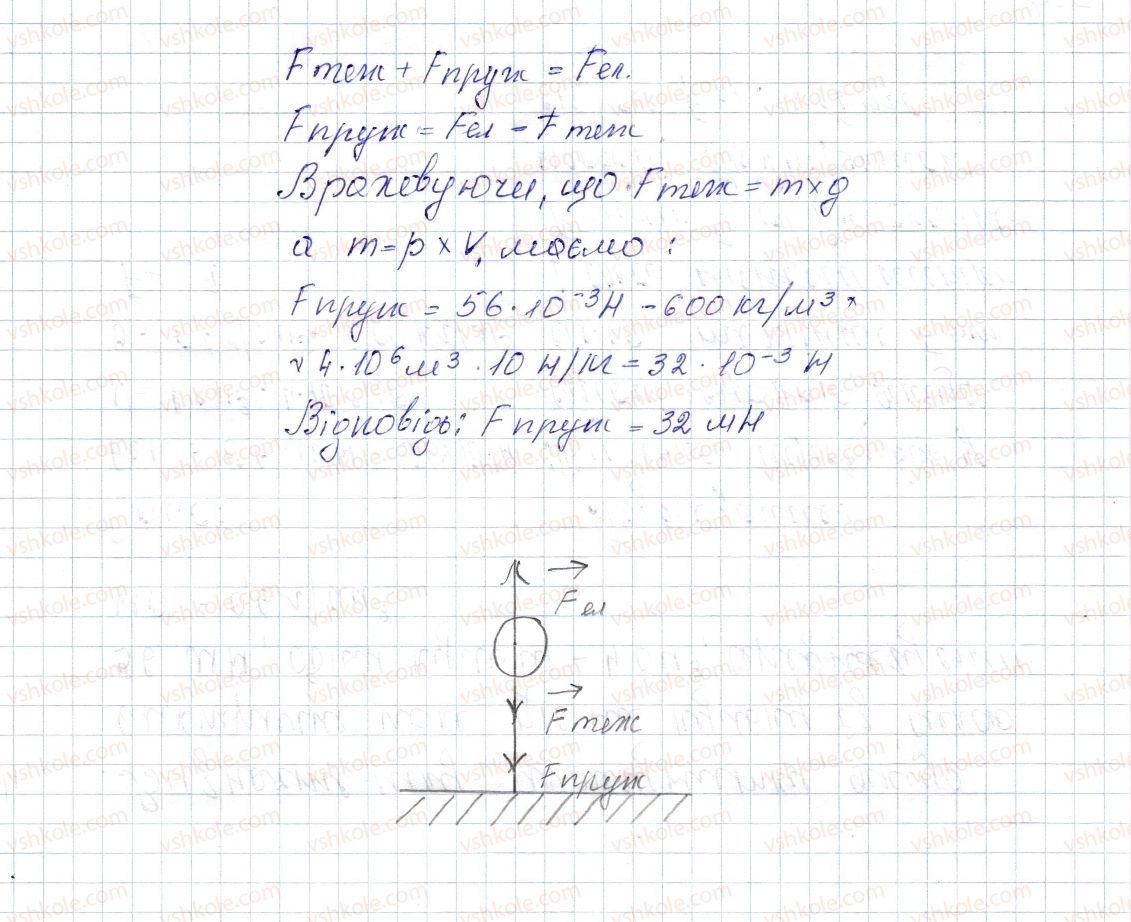 Fтяж + Fпруж = Fел.
Fпруж = Fел - Fтяж
Враховуючи, що Fтяж = m×g
а m=p×V, маємо:
Fпруж = 56·10⁻³Н - 600 кг/м³ ×
× 4·10⁶м³·10 Н/м = 32·10⁻³ Н
Відповідь: Fпруж = 32 мН
Fел
Fтяж
Fпруж